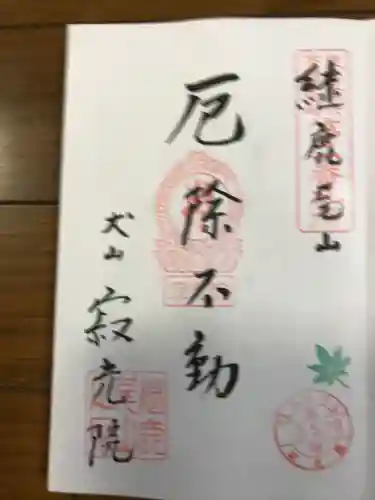 継鹿尾山
厄除不動
犬山 寂光院